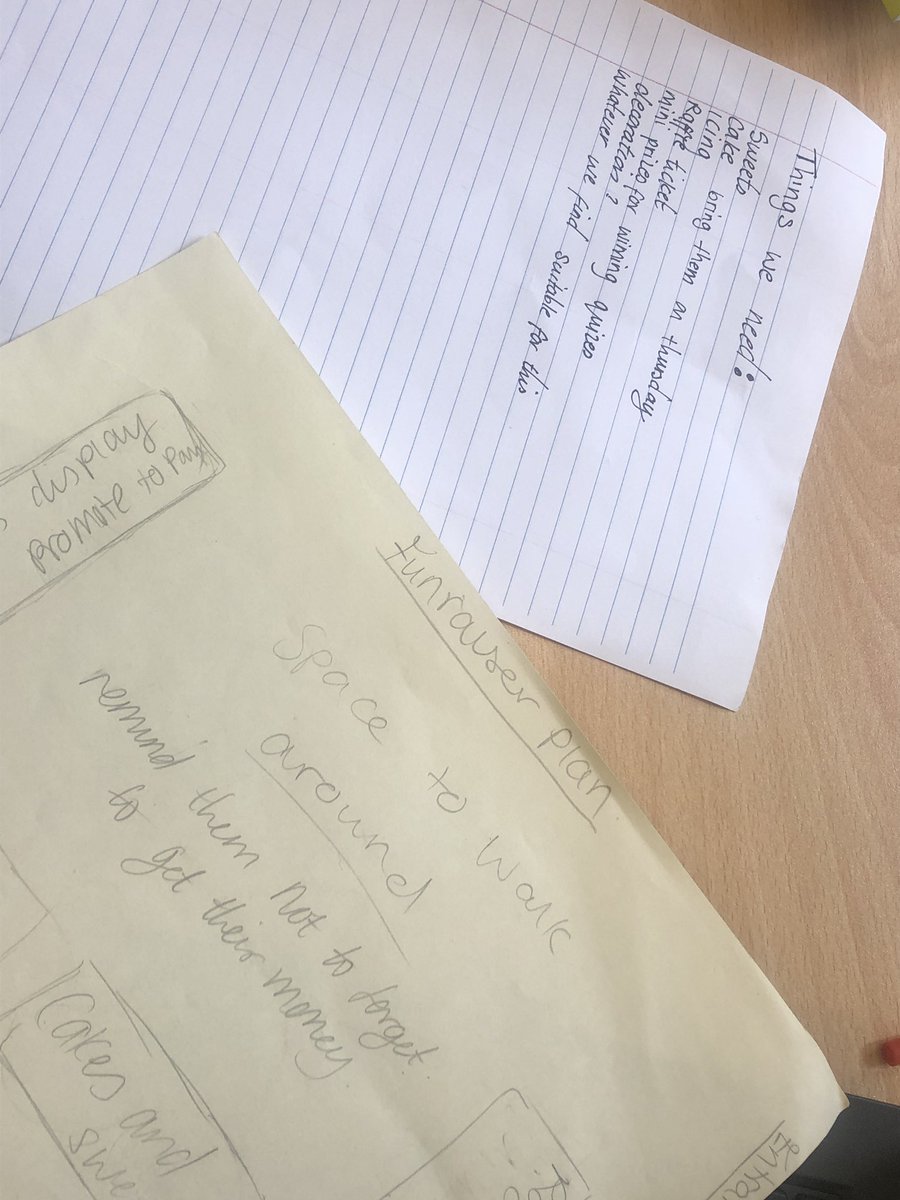 Things we need:
Sweets
Cake
Icing bring them on thursday
Raffle ticket
mini prizes for wining quizes
decorations?
whatever we find suitable for this
Funraiser plan
Space to walk
around
remind them not to forget
to get their money.
display
promote to
Cakes and